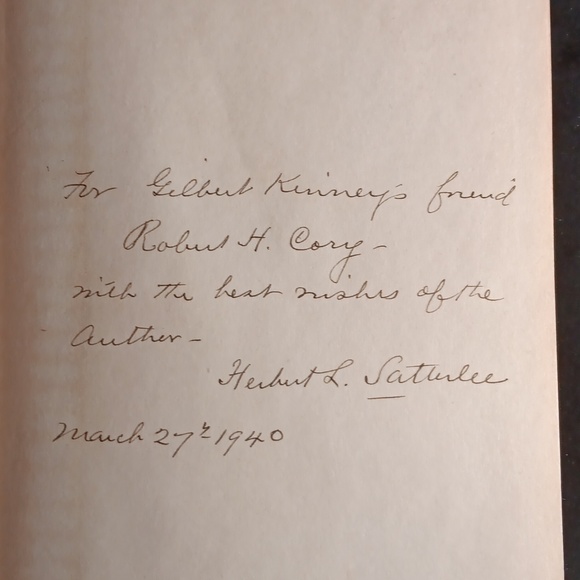 For Gilbert Kinney's friend
Robert H. Cory -
with the best wishes of the
Author -
Herbert L. Satterlee
March 27th 1940